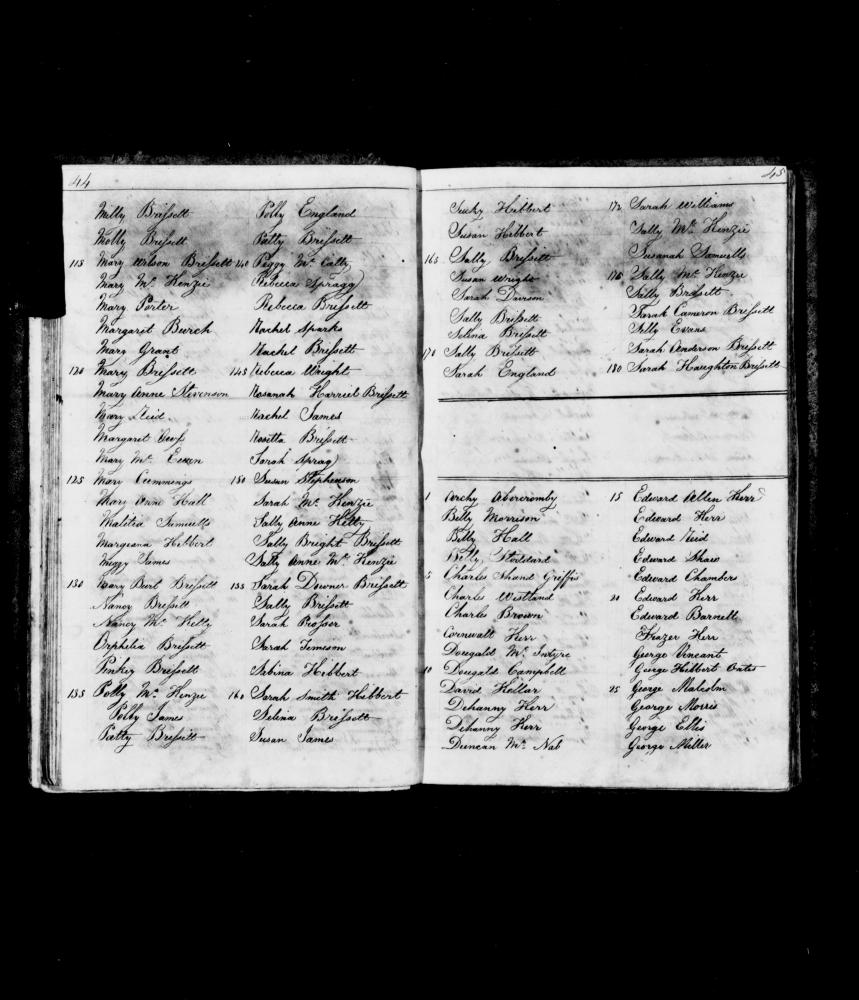 44
Milly Brissett
Molly Brissett
115 Mary Wilson Brissett
Mary Mc Kenzie
Mary Porter
Margaret Burch
Mary Grant
120 Mary Brissett
Mary Anne Stevenson
Mary Reid
Margaret
Mary Mc Ewen
125 Mary Cummings
Mary Ann Hall
Malitia Samuells
Margeana Hibbert
Meggy James
130 Mary Burl Brissett
Nancy Brissett
Nancy Mc Kelly
Orphelia Brissett
Pinkey Brissett
135 Polly Mc Kenzie
Polly James
Patty Brissett
Polly England
Patty Brissett
140 Peggy Mc Calty
Rebecca Spragg
Rebecca Brissett
Rachel Sparks
Rachel Brissett
145 Rebecca Wright
Rosanah Harriet Brissett
Rachel James
Rosetta Brissett
Sarah Sprag
150 Susan Stephenson
Sarah Mc Kenzie
Sally Anne Kelly
Sally Bright Brissett
Sally Anne Mc Kenzie
155 Sarah Downer Brissett
Sally Brissett
Sarah Prosser
Sarah Jemison
Sabina Hibbert
160 Sarah Smith Hibbert
Selina Brissett
Susan James
45
Sucky Hibbert
Susan Hibbert
165 Sally Brissett
Susan Wright
Sarah Davison
Sally Brissett
Selina Brissett
170 Sally Brissett
Sarah England
172 Sarah Williams
Sally Mc Kenzie
Susanah Samuells
175 Sally Mc Kenzie
Sally Brissett
Sarah Cameron Brissett
Silly Evans
Sarah Anderson Brissett
180 Sarah Haughton Brissett
1 Archy Abercromby
Billy Morrison
Billy Hall
Billy Stoddard
5 Charles Shand Griffis
Charles Westland
Charles Brown
Cornwall Kerr
Dougald Mc Intyre
10 Dougald Campbell
David Kellar
Dehanny Kerr
Dehanny Kerr
Duncan Mc Nab
15 Edward Allen Kerr
Edward Kerr
Edward Reid
Edward Shaw
Edward Chambers
20 Edward Kerr
Edward Barnett
Frazer Kerr
George Vincent
George Hibbert Oates
25 George Malcolm
George Morris
George Ellis
George Miller